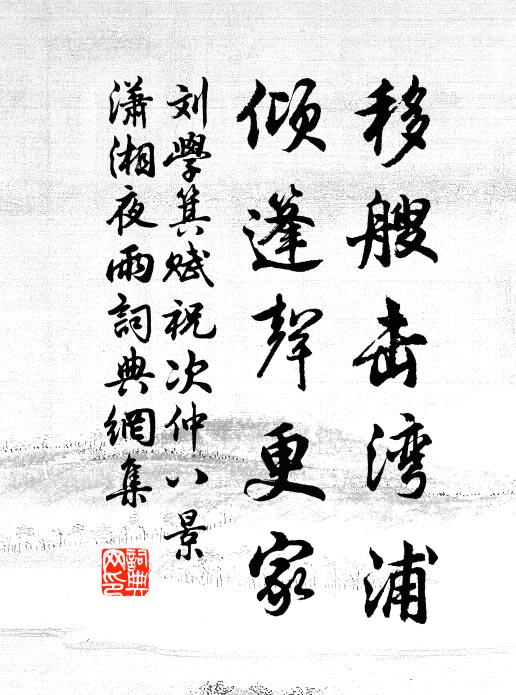 移艘击湾浦
倾篷聲更家
刘學箕赋祝次仲八景
瀟湘夜雨詞典網集
詞典网印